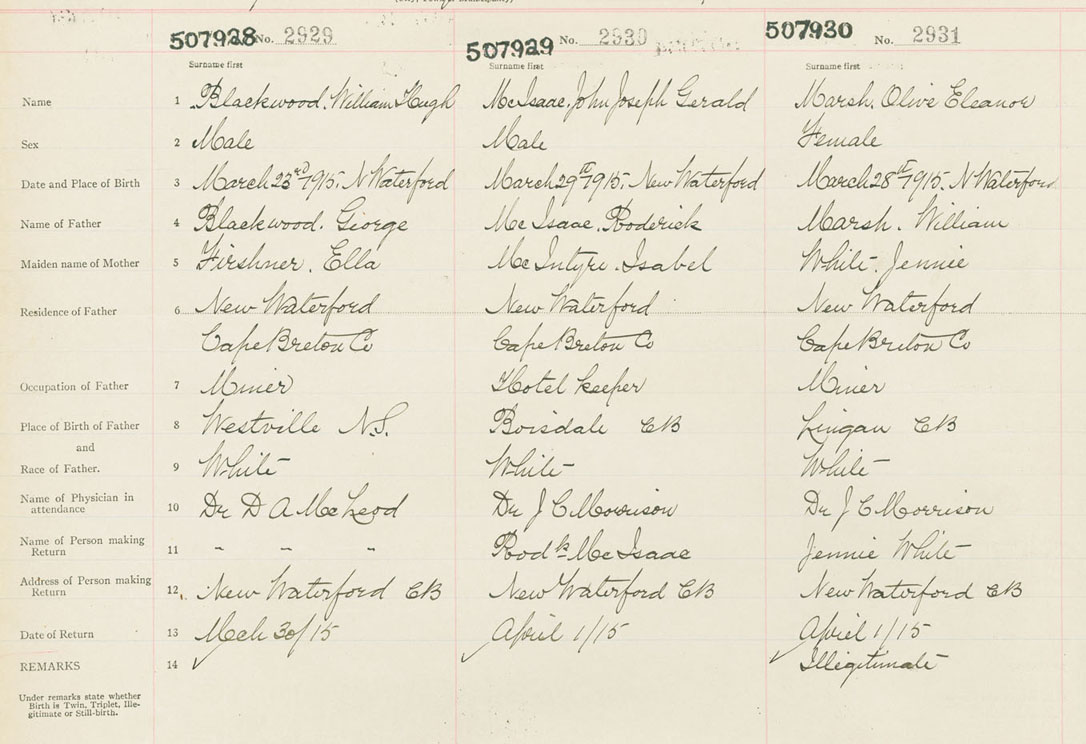 507928 No. 2929 507929 No. 2930 507930 No. 2931
Surname first Surname first Surname first
Name 1 Blackwood. William Hugh McIsaac. John Joseph Gerald Marsh. Olive Eleanor
Sex 2 Male Male Female
Date and Place of Birth 3 March 23rd 1915. N Waterford March 29th 1915. New Waterford March 28th 1915. N Waterford
Name of Father 4 Blackwood. George McIsaac. Roderick Marsh. William
Maiden name of Mother 5 Firshner. Ella McIntyre. Isabel White. Jennie
Residence of Father 6 New Waterford New Waterford New Waterford
Cape Breton Co Cape Breton Co Cape Breton Co
Occupation of Father 7 Miner Hotel keeper Miner
Place of Birth of Father 8 Westville N.S. Boisdale CB Lingan CB
and
Race of Father. 9 White White White
Name of Physician in
attendance 10 Dr D A McLeod Dr J C Morrison Dr J C Morrison
Name of Person making
Return 11 " " " Rodk McIsaac Jennie White
Address of Person making
Return 12 New Waterford CB New Waterford CB New Waterford CB
Date of Return 13 Mch 30/15 April 1/15 April 1/15
REMARKS 14 Illegitimate
Under remarks state whether
Birth is Twin, Triplet, Ille-
gitimate or Still-birth.